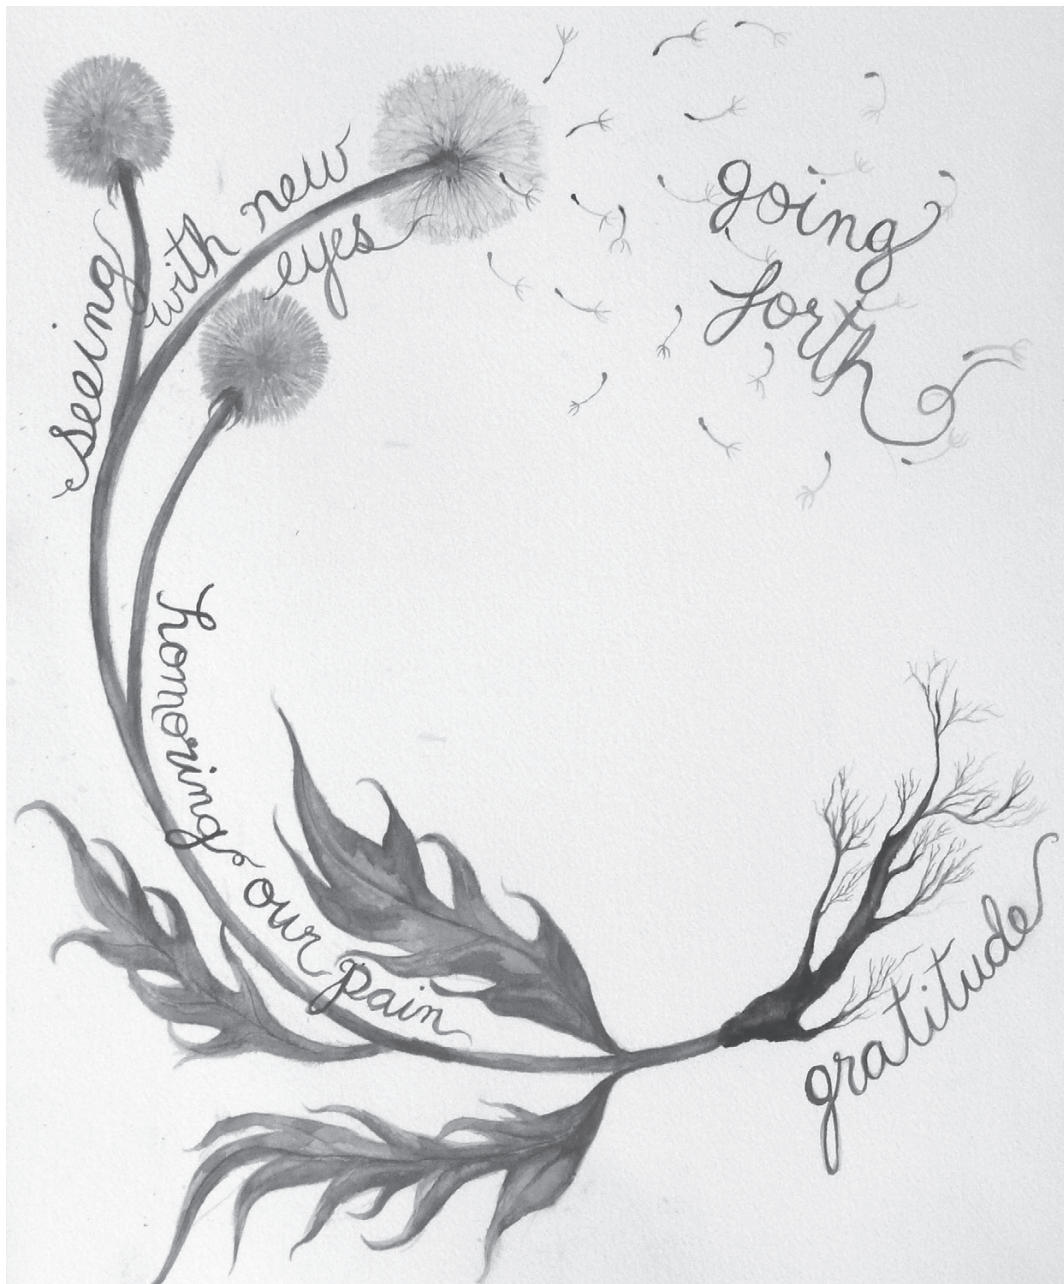 seeing with new
eyes
going
forth
honoring our pain
gratitude